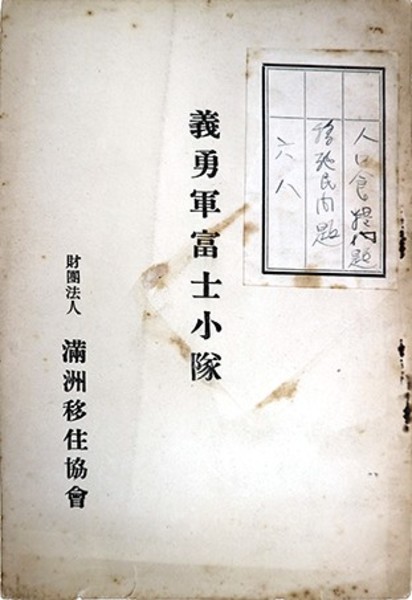 人口食糧問題
移殖民問題
六八
義勇軍富士小隊
財團法人 滿洲移住協會